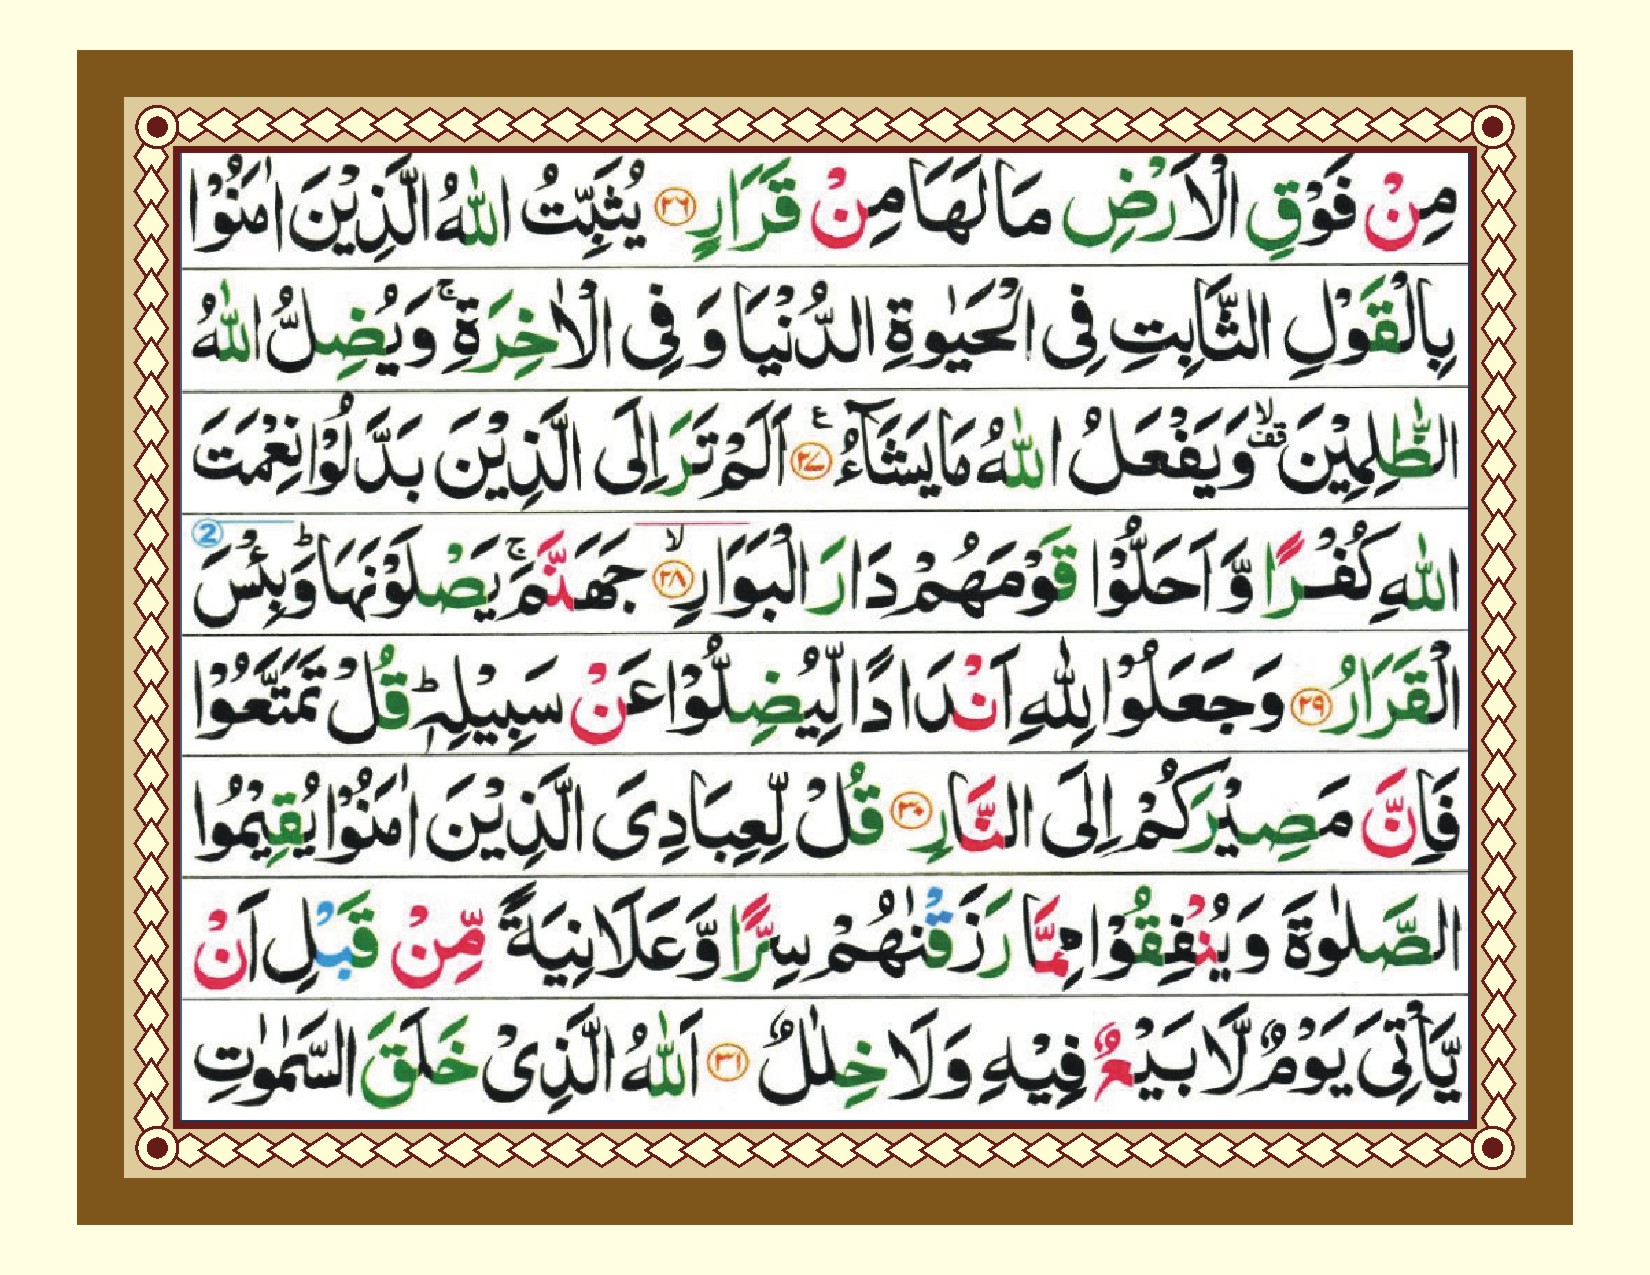 مِنْ فَوْقِ الْاَرْضِ مَا لَهَا مِنْ قَرَارٍ ﴿۲۶﴾ يُثَبِّتُ اللّٰهُ الَّذِيْنَ اٰمَنُوْا
بِالْقَوْلِ الثَّابِتِ فِى الْحَيٰوةِ الدُّنْيَا وَ فِى الْاٰخِرَةِ ۚ وَيُضِلُّ اللّٰهُ
الظّٰلِمِيْنَ ۙ قف وَيَفْعَلُ اللّٰهُ مَا يَشَآءُ ﴿۲۷﴾ ع اَلَمْ تَرَ اِلَى الَّذِيْنَ بَدَّلُوْا نِعْمَتَ
اللّٰهِ كُفْرًا وَّ اَحَلُّوْا قَوْمَهُمْ دَارَ الْبَوَارِ ﴿۲۸﴾ ۙ جَهَنَّمَ ۚ يَصْلَوْنَهَا ؕ وَبِئْسَ 2
الْقَرَارُ ﴿۲۹﴾ وَجَعَلُوْا لِلّٰهِ اَنْدَادًا لِّيُضِلُّوْا عَنْ سَبِيْلِهٖ ؕ قُلْ تَمَتَّعُوْا
فَاِنَّ مَصِيْرَكُمْ اِلَى النَّارِ ﴿۳۰﴾ قُلْ لِّعِبَادِىَ الَّذِيْنَ اٰمَنُوْا يُقِيْمُوا
الصَّلٰوةَ وَيُنْفِقُوْا مِمَّا رَزَقْنٰهُمْ سِرًّا وَّعَلَانِيَةً مِّنْ قَبْلِ اَنْ
يَّاْتِىَ يَوْمٌ لَّا بَيْعٌ فِيْهِ وَلَا خِلٰلٌ ﴿۳۱﴾ اَللّٰهُ الَّذِىْ خَلَقَ السَّمٰوٰتِ